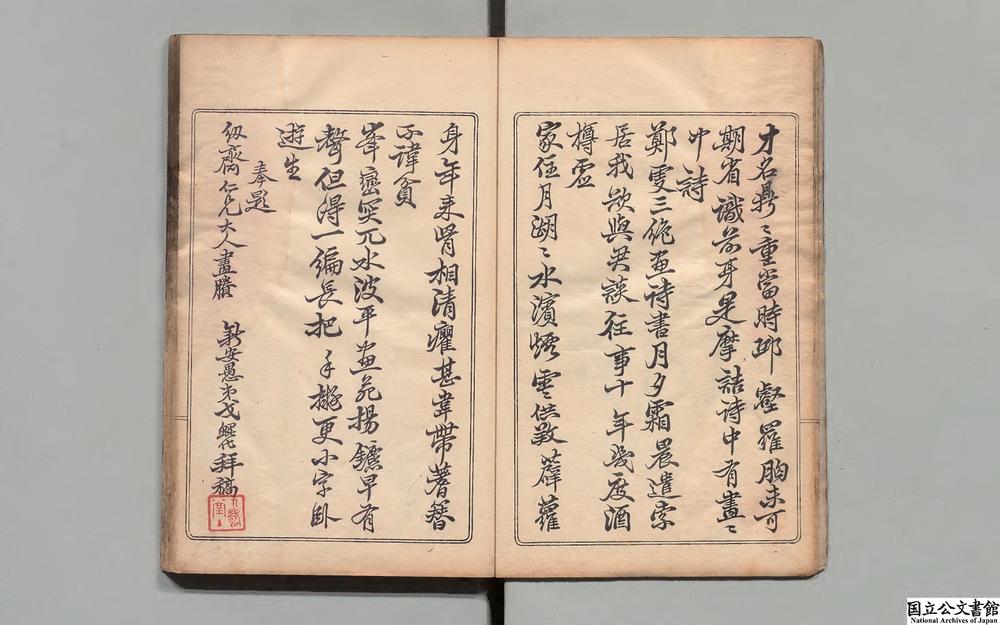 才名鼎〻重當時邱壑羅胸未可
期省識前身是摩詰诗中有畫〻
中詩
鄭雯三絶画诗書月夕霜晨遣索
居我欲與君談往事十年幾度酒
樽虚
家住月湖〻水濱烟雲供養薜蘿
身年来骨相清癯甚韋帶蓍簪
不諱貧
峯巒突兀水波平画苑揚鑣早有
聲但得一編長把手 更小字臥
遊生
奉題
仁兄大人畫牘
新安愚弟戈 拜稿
国立公文書館
National Archives of Japan